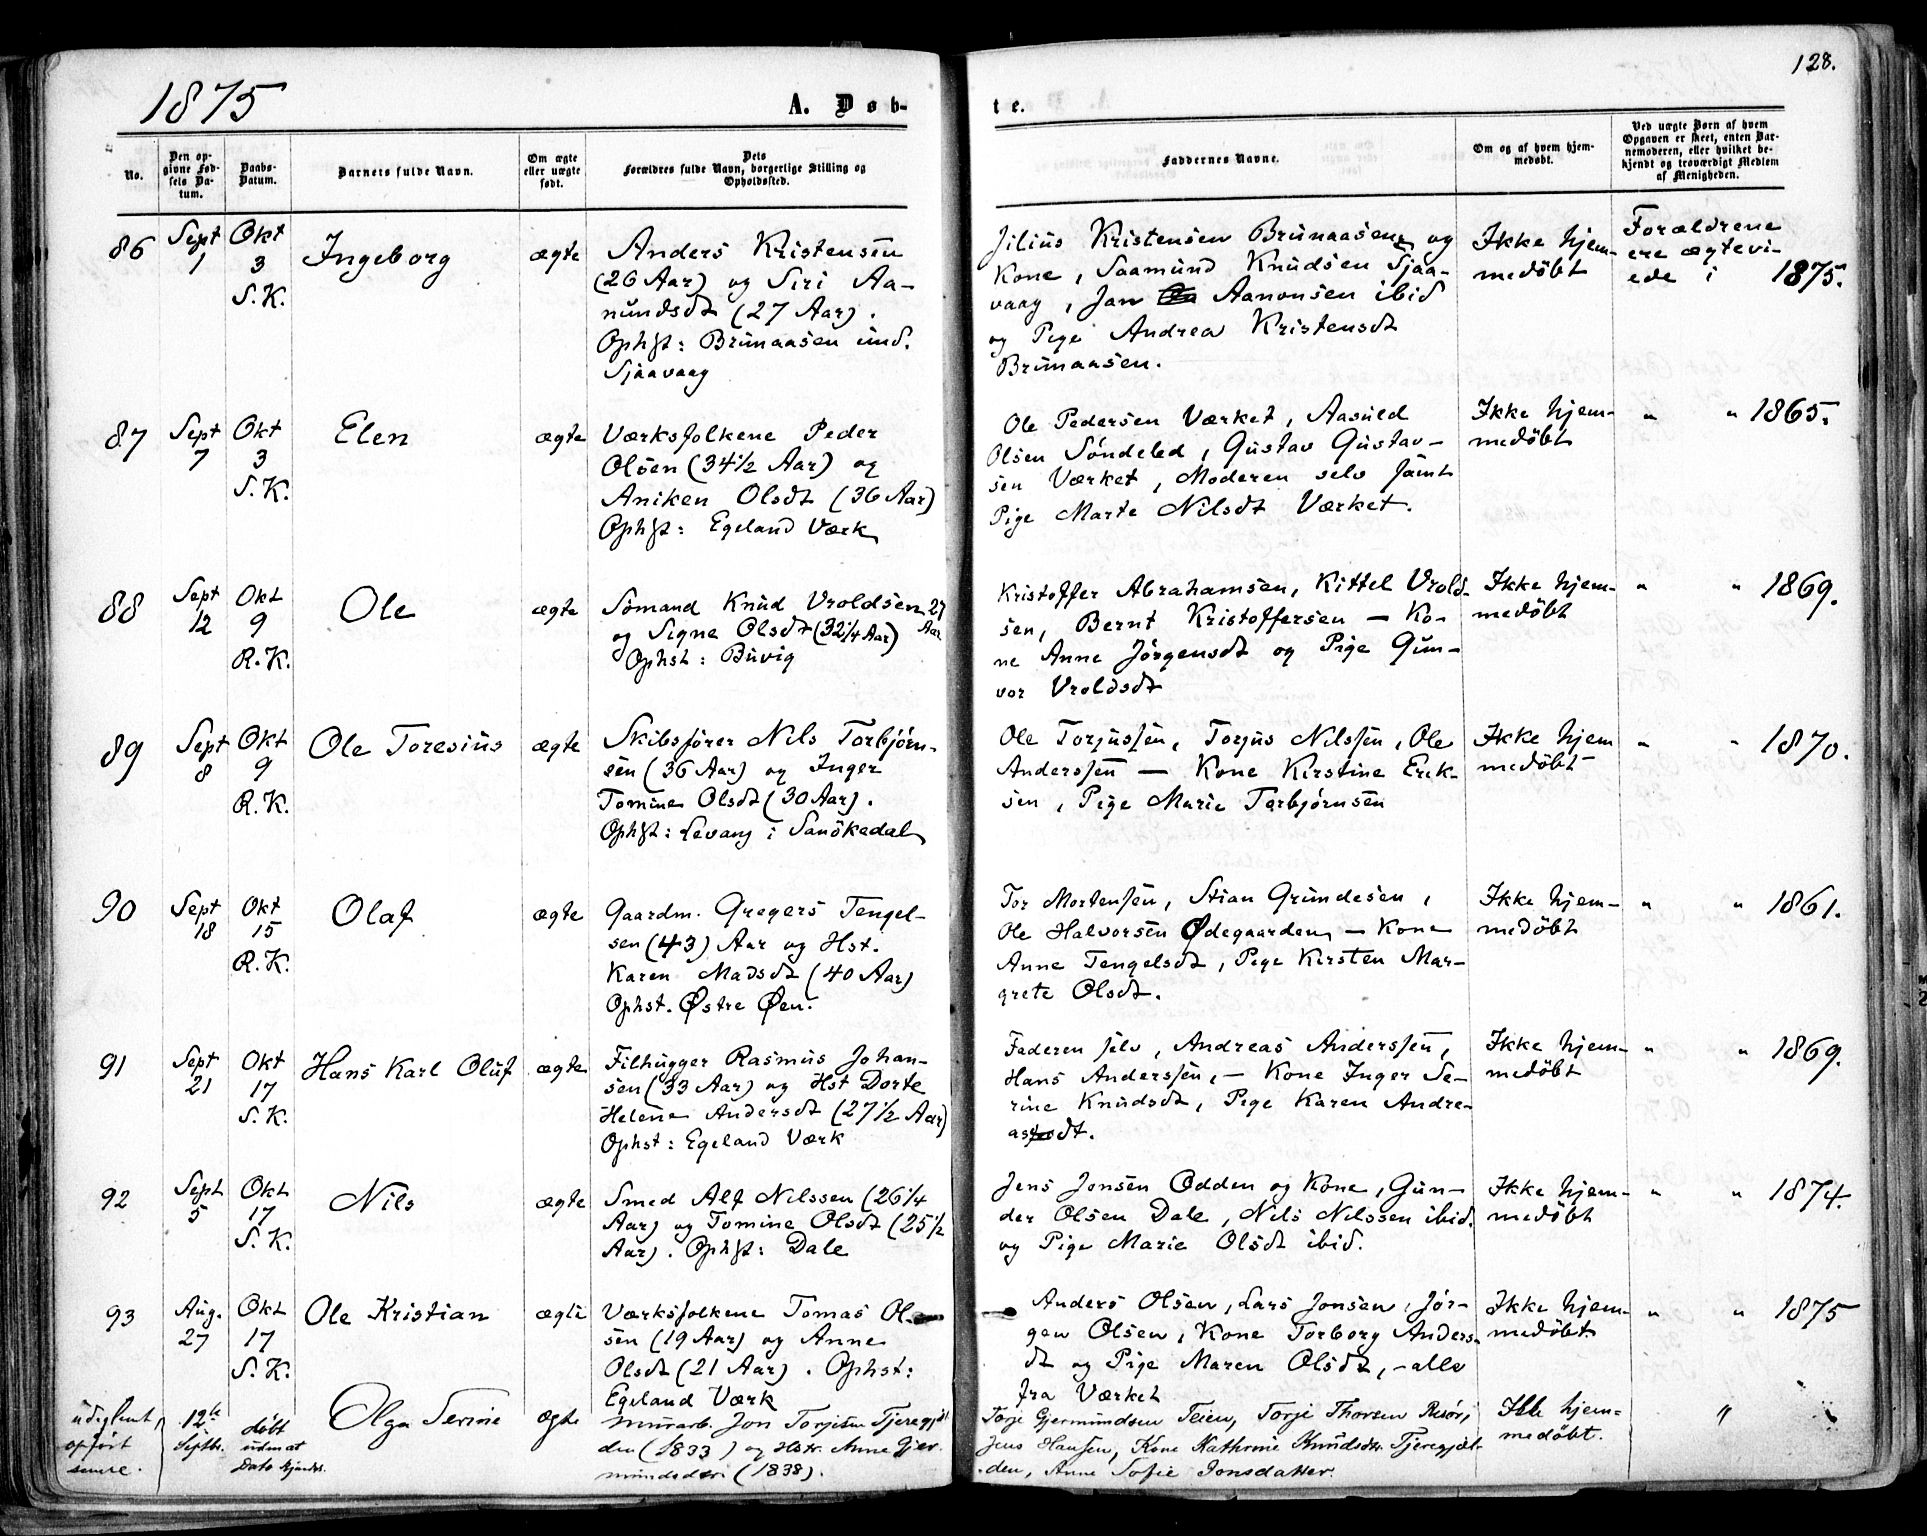 1875
A. Døb-
te.
128.
No.
Den op-
givne Fød-
sels Da-
tum.
Daabs-
Datum.
Barnets fulde Navn.
Om ægte
eller uægte
født.
Dets
Forældres fulde Navn, borgerlige Stilling og
Opholdssted.
Faddernes Navne.
Om og af hvem hjem-
medøbt.
Ved uægte Børn af hvem
Opgaven er skeet, enten Bar-
nemoderen, eller hvilket be-
kjendt og troværdigt Medlem
af Menigheden.
86
Sept
1
Okt
3
S. K.
Ingeborg
ægte
Anders Kristensen
(26 Aar) og Siri Aa-
nundsdt (27 Aar).
Ophst: Brunaasen und.
Sjaavaag
Jilius Kristensen Brunaasen og
Kone, Saamund Knudsen Sjaa-
vaag, Jan Aanonsen ibid
og Pige Andrea Kristensdt
Brunaasen.
Ikke hjem-
medøbt
Forældrene
ere ægtevi-
ede i 1875.
87
Sept
7
Okt
3
S. K.
Elen
ægte
Værksfolkene Peder
Olsen (34 1/2 Aar) og
Aniken Olsdt (36 Aar)
Ophst: Egeland Værk
Ole Pedersen Værket, Aasuld
Olsen Søndeled, Gustav Gustav-
sen Værket, Moderen selv samt
Pige Marte Nilsdt Værket.
Ikke hjem-
medøbt
" " 1865.
88
Sept
12
Okt
9
R. K.
Ole
ægte
Sømand Knud Vroldsen 27
og Signe Olsdt (32 1/4 Aar) Aar
Ophst: Buvig
Kristoffer Abrahamsen, Kittel Vrold-
sen, Bernt Kristoffersen — Ko-
ne Anne Jørgensdt og Pige Gun-
vor Vroldsdt
Ikke hjem-
medøbt
" " 1869.
89
Sept
8
Okt
9
R. K.
Ole Toresius
ægte
Skibsfører Nils Torbjørn-
sen (36 Aar) og Inger
Tomine Olsdt (30 Aar).
Ophst: Levang i Sanökedal
Ole Torjussen, Torjus Nilssen, Ole
Anderssen — Kone Kirstine Erik-
sen, Pige Marie Torbjørnsen
Ikke hjem
medøbt
" " 1870.
90
Sept
18
Okt
15
R. K.
Olaf
ægte
Gaardm. Gregers Tengel-
sen (43) Aar og Hst.
Karen Madsdt (40 Aar)
Ophst. Østre Øen.
Tor Mortensen, Stian Grundesen,
Ole Halvorsen Ødegaarden — Kone
Anne Tengelsdt, Pige Kirsten Mar-
grete Olsdt.
Ikke hjem-
medøbt
" " 1861.
91
Sept
21
Okt
17
S. K.
Hans Karl Oluf
ægte
Filhugger Rasmus Johan-
sen (33 Aar) og Hst Dorte
Helene Andersdt (27 1/2 Aar)
Ophst: Egeland Værk
Faderen selv, Andreas Anderssen,
Hans Anderssen, — Kone Inger Se-
rine Knudsdt, Pige Karen Andre-
asdt.
Ikke hjem-
medøbt
" " 1869.
92
Sept
5
Okt
17
S. K.
Nils
ægte
Smed Alf Nilssen (26 1/4
Aar) og Tomine Olsdt (25 1/2
Aar). Ophst: Dale
Jens Jonsen Odden og Kone, Gun-
der Olsen Dale, Nils Nilssen ibid.
og Pige Marie Olsdt ibid.
Ikke hjem-
medøbt
" " 1874.
93
Aug.
27
Okt
17
S. K.
Ole Kristian
ægte
Værksfolkene Tomas Ol-
sen (19 Aar) og Anne
Olsdt (21 Aar). Ophst:
Egeland Værk
Anders Olsen, Lars Jonsen, Jør-
gen Olsen, Kone Torborg Anders-
dt og Pige Maren Olsdt, — alle
fra Værket
Ikke hjem-
medøbt.
" " 1875
udeglemt,
opført
senere.
12te
Septbr.
døbt
uden at
Dato kjendes.
Olga Serine
ægte
Murarb. Jon Torjisen Tjeregjæt-
den (1833) og Hstr. Anne Gjer-
mundsdtr (1838).
Torje Gjermundsen Teien, Torje Thorsen Risør,
Jens Hansen, Kone Kathrine Knudsdtr Tjeregjæt-
den, Anne Sofie Jonsdatter.
Ikke hjem-
medøbt.
"